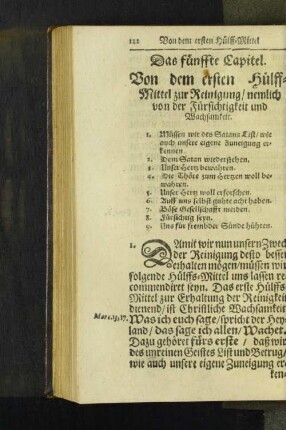 122 Von dem ersten Hülff-Mittel
Das fünffte Capitel.
Von dem ersten Hülff-
Mittel zur Reinigung/ nemlich
von der Fürsichtigkeit und
Wachsamkeit.
1. Müssen wir des Satans List/ wie
auch unsere eigene Zuneigung er-
kennen.
2. Dem Satan wiederstehen.
3. Unser Hertz bewahren.
4. Die Thöre zum Hertzen woll be-
wahren.
5. Unser Hertz woll erforschen.
6. Auff uns selbst guhte acht haben.
7. Böse Gesellschafft meiden.
8. Fürsichtig seyn.
9. Uns für frembder Sünde hühten.
1. DAmit wir nun unsern Zweck
der Reinigung desto besser
erhalten mögen/ müssen wir
folgende Hülffs-Mittel uns lassen re-
commendirt seyn. Das erste Hülffs-
Mittel zur Erhaltung der Reinigkeit
dienend/ ist Christliche Wachsamkeit
Marc. 13, 37. Was ich euch sage/ spricht der Hey-
land/ das sage ich allen/ Wachet.
Dazu gehöret fürs erste / daß wir
des unreinen Geistes List und Betrug/
wie auch unsere eigene Zuneigung er-
ken-